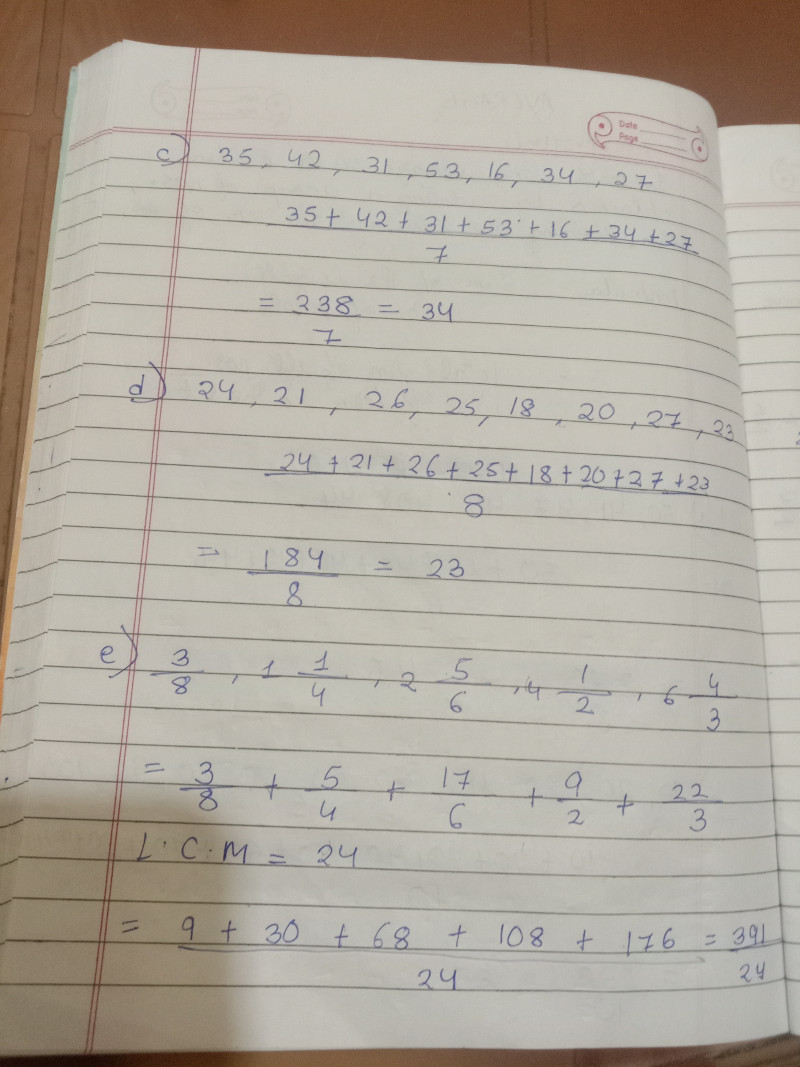 Date
Page
c) 35, 42, 31, 53, 16, 34, 27
35 + 42 + 31 + 53 + 16 + 34 + 27
7
= 238/7 = 34
d) 24, 21, 26, 25, 18, 20, 27, 23
24 + 21 + 26 + 25 + 18 + 20 + 27 + 23
8
= 184/8 = 23
e) 3/8, 1 1/4, 2 5/6, 4 1/2, 6 4/3
= 3/8 + 5/4 + 17/6 + 9/2 + 22/3
L.C.M = 24
= 9 + 30 + 68 + 108 + 176 = 391/24
24